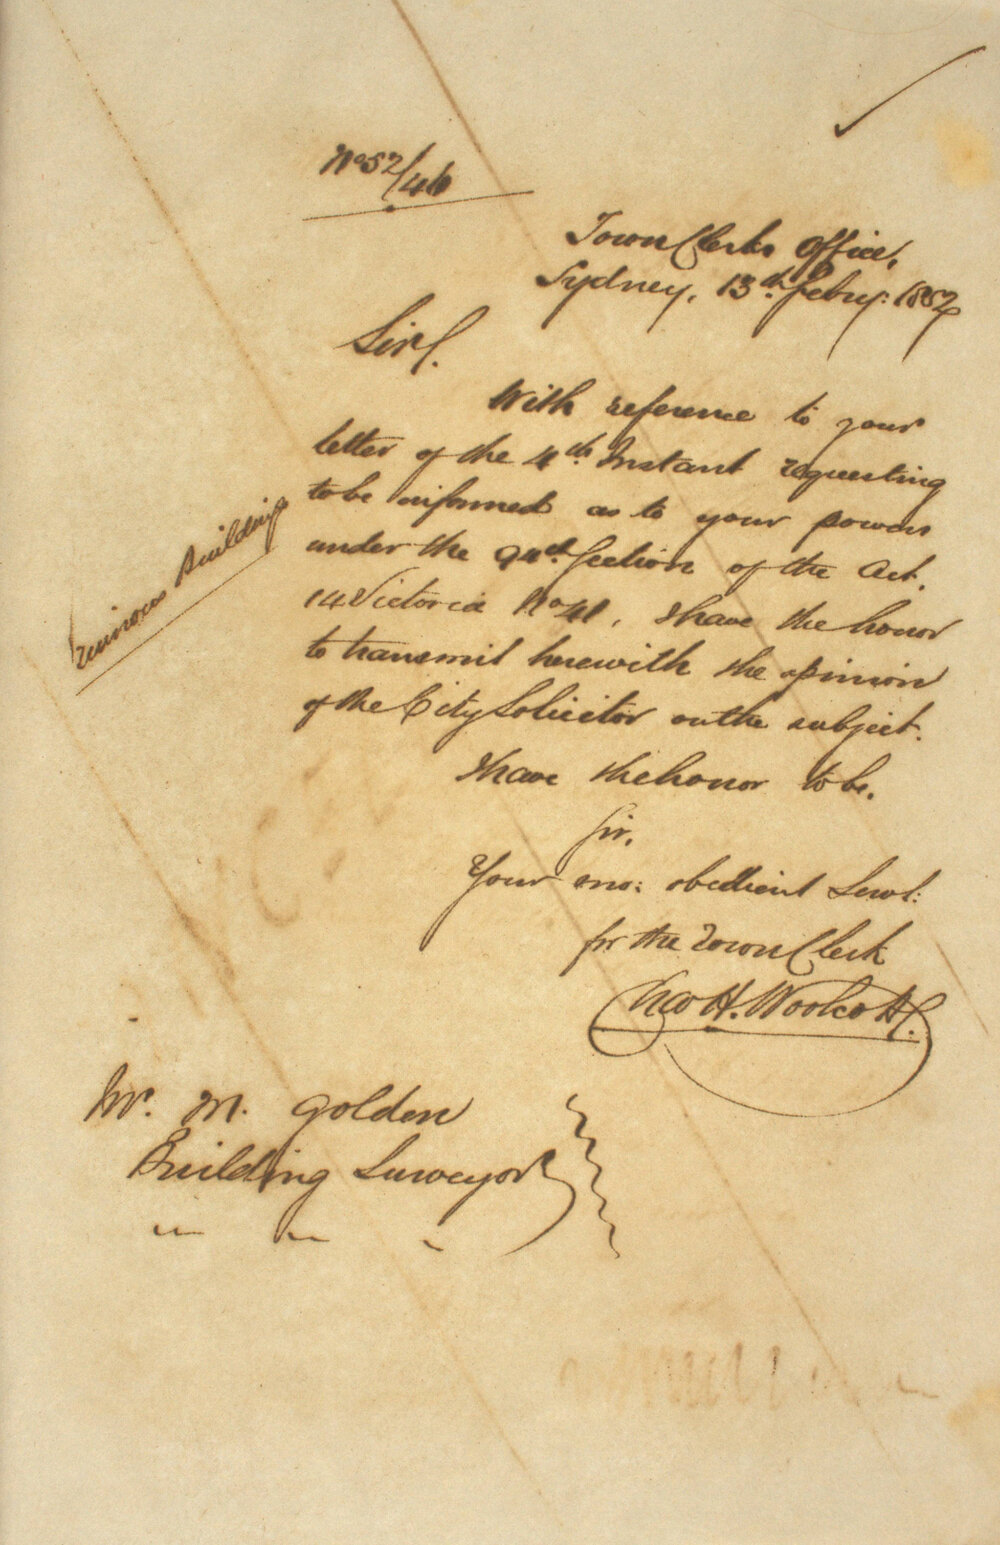 No 52/46
Town Clerks Office,
Sydney, 13th Feby: 1852
Sir,
With reference to your
letter of the 4th Instant requesting
to be informed as to your powers
under the 94th Section of the Act,
14 Victoria No 41, I have the honor
to transmit herewith the opinion
of the City Solicitor on the subject.
I have the honor to be,
Sir,
Your mo: obedient Servt:
for the Town Clerk
Chas H. Woolcott
ruinous Buildings
Mr. M. Golden
Building Surveyor